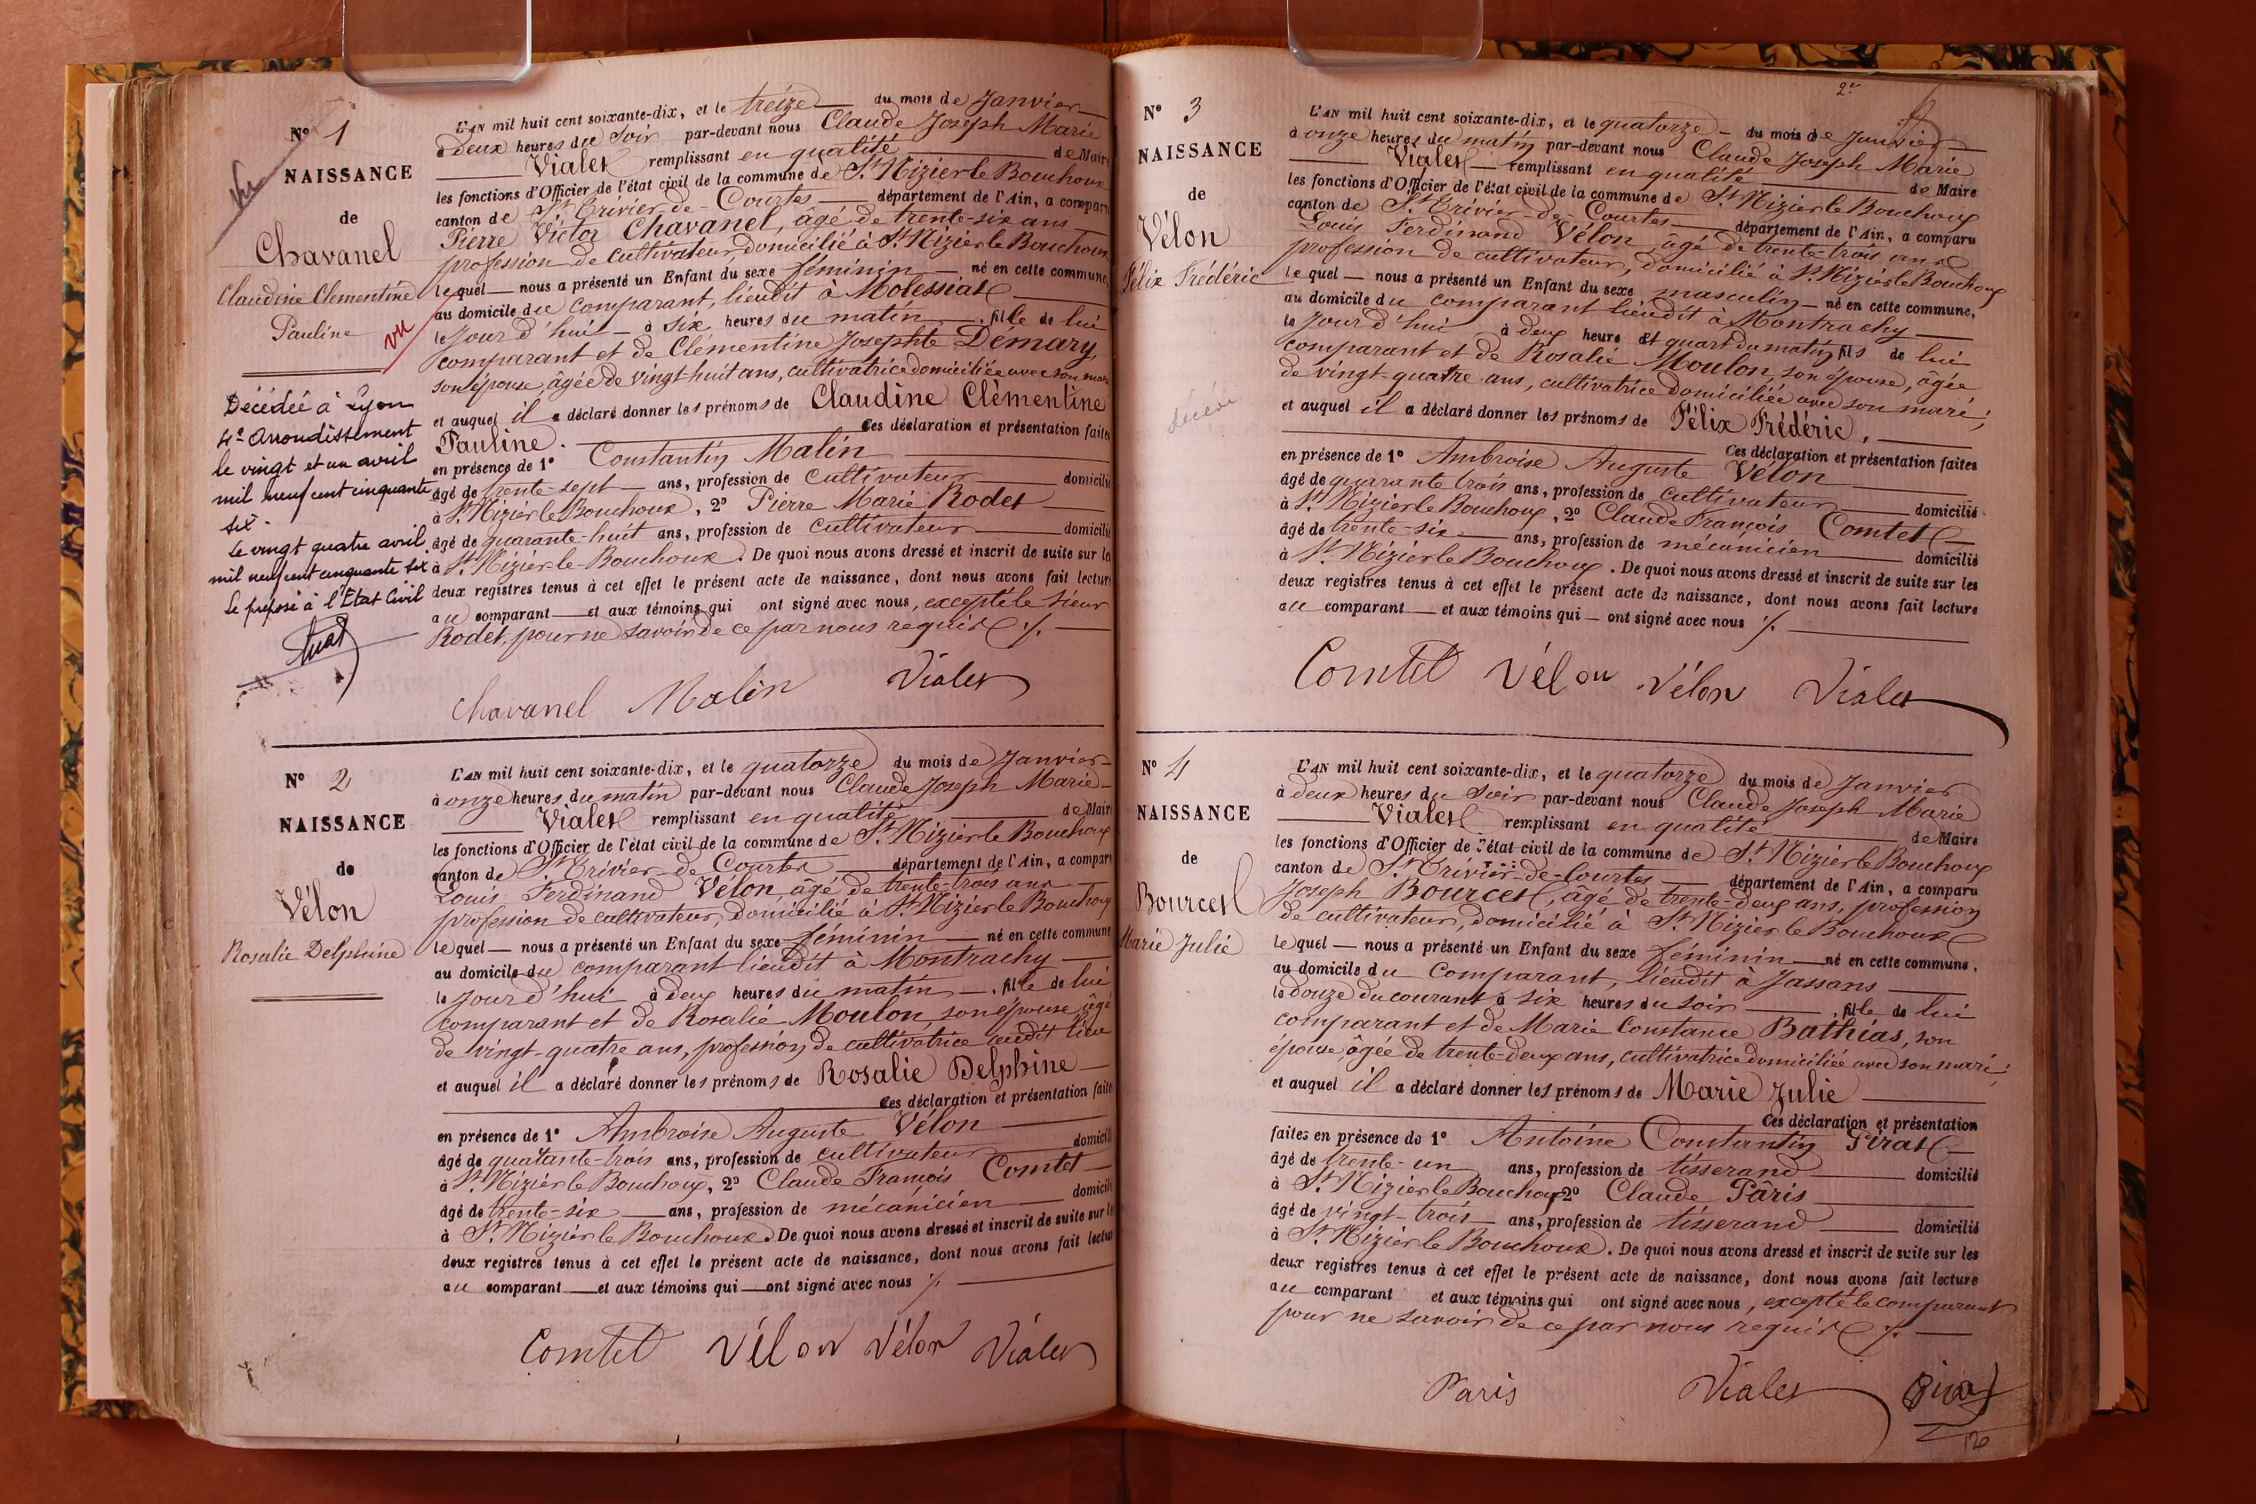 N° 1
NAISSANCE
de
Chavanel
Claudine Clementine
Pauline
vu
Décédée à Lyon
4e arrondissement
le vingt et un avril
mil neuf cent cinquante
six.
le vingt quatre avril
mil neuf cent cinquante six.
Le préposé à l'Etat Civil
L'AN mil huit cent soixante-dix, et le treize du mois de Janvier
à deux heures du soir par-devant nous Claude Joseph Marie
Vialet remplissant en qualité de Maire
les fonctions d'Officier de l'état civil de la commune de St Nizier le Bouchoux
canton de St Trivier-de-Courtes département de l'Ain, a comparu
Pierre Victor Chavanel, âgé de trente-six ans
profession de cultivateur, domicilié à St Nizier le Bouchoux
lequel nous a présenté un Enfant du sexe féminin né en cette commune,
au domicile du comparant, lieudit à Molessiat
le jour d'hui à six heures du matin, fille de lui
comparant et de Clémentine Josephte Demary
son épouse, âgée de vingt huit ans, cultivatrice domiciliée avec son mari
et auquel il a déclaré donner les prénoms de Claudine Clémentine
Pauline. Ces déclaration et présentation faites
en présence de 1° Constantin Malin
âgé de trente-sept ans, profession de cultivateur domicilié
à St Nizier le Bouchoux, 2° Pierre Marie Rodet
âgé de quarante-huit ans, profession de cultivateur domicilié
à St Nizier-le-Bouchoux. De quoi nous avons dressé et inscrit de suite sur les
deux registres tenus à cet effet le présent acte de naissance, dont nous avons fait lecture
au comparant et aux témoins qui ont signé avec nous, excepté le sieur
Rodet, pour ne savoir de ce par nous requis ./.
Chavanel Malin Vialet
N° 2
NAISSANCE
de
Vélon
Rosalie Delphine
L'AN mil huit cent soixante-dix, et le quatorze du mois de Janvier
à onze heures du matin par-devant nous Claude Joseph Marie
Vialet remplissant en qualité de Maire
les fonctions d'Officier de l'état civil de la commune de St Nizier le Bouchoux
canton de St Trivier-de-Courtes département de l'Ain, a comparu
Louis Ferdinand Vélon, âgé de trente-trois ans
profession de cultivateur, domicilié à St Nizier le Bouchoux
lequel nous a présenté un Enfant du sexe féminin né en cette commune
au domicile du comparant lieudit à Montrachy
le jour d'hui à deux heures du matin, fille de lui
comparant et de Rosalie Moulon, son épouse, âgé
de vingt-quatre ans, profession de cultivatrice audit lieu
et auquel il a déclaré donner les prénoms de Rosalie Delphine
Ces déclaration et présentation faites
en présence de 1° Ambroise Auguste Vélon
âgé de quarante-trois ans, profession de cultivateur domicilié
à St Nizier le Bouchoux, 2° Claude François Comtet
âgé de trente-six ans, profession de mécanicien domicilié
à St Nizier le Bouchoux. De quoi nous avons dressé et inscrit de suite sur les
deux registres tenus à cet effet le présent acte de naissance, dont nous avons fait lecture
au comparant et aux témoins qui ont signé avec nous ./.
Comtet Vélon Vélon Vialet
2e
N° 3
NAISSANCE
de
Vélon
Félix Frédéric
décédé
L'AN mil huit cent soixante-dix, et le quatorze du mois de Janvier
à onze heures du matin par-devant nous Claude Joseph Marie
Vialet remplissant en qualité de Maire
les fonctions d'Officier de l'état civil de la commune de St Nizier le Bouchoux
canton de St Trivier-de-Courtes département de l'Ain, a comparu
Louis Ferdinand Vélon, âgé de trente-trois ans
profession de cultivateur, domicilié à St Nizier le Bouchoux
lequel nous a présenté un Enfant du sexe masculin né en cette commune,
au domicile du comparant lieudit à Montrachy
le jour d'hui à deux heures et quart du matin fils de lui
comparant et de Rosalie Moulon, son épouse, âgée
de vingt-quatre ans, cultivatrice domiciliée avec son mari;
et auquel il a déclaré donner les prénoms de Félix Frédéric,
Ces déclaration et présentation faites
en présence de 1° Ambroise Auguste Vélon
âgé de quarante trois ans, profession de cultivateur domicilié
à St Nizier le Bouchoux, 2° Claude François Comtet
âgé de trente-six ans, profession de mécanicien domicilié
à St Nizier le Bouchoux. De quoi nous avons dressé et inscrit de suite sur les
deux registres tenus à cet effet le présent acte de naissance, dont nous avons fait lecture
au comparant et aux témoins qui ont signé avec nous ./.
Comtet Vélon Vélon Vialet
N° 4
NAISSANCE
de
Bourcet
Marie Julie
L'AN mil huit cent soixante-dix, et le quatorze du mois de Janvier
à deux heures du soir par-devant nous Claude Joseph Marie
Vialet remplissant en qualité de Maire
les fonctions d'Officier de l'état civil de la commune de St Nizier le Bouchoux
canton de St Trivier-de-Courtes département de l'Ain, a comparu
Joseph Bourcet, âgé de trente-deux ans, profession
de cultivateur, domicilié à St Nizier le Bouchoux
lequel nous a présenté un Enfant du sexe féminin né en cette commune,
au domicile du comparant, lieudit à Jassans
le douze du courant à six heures du soir, fille de lui
comparant et de Marie Constance Bathias, son
épouse, âgée de trente-deux ans, cultivatrice domiciliée avec son mari;
et auquel il a déclaré donner les prénoms de Marie Julie
Ces déclaration et présentation
faites en présence de 1° Antoine Constantin Pirat
âgé de trente-un ans, profession de tisserand domicilié
à St Nizier le Bouchoux 2° Claude Pâris
âgé de vingt-trois ans, profession de tisserand domicilié
à St Nizier le Bouchoux. De quoi nous avons dressé et inscrit de suite sur les
deux registres tenus à cet effet le présent acte de naissance, dont nous avons fait lecture
au comparant et aux témoins qui ont signé avec nous, excepté le comparant
pour ne savoir de ce par nous requis ./.
Paris Vialet Pirat